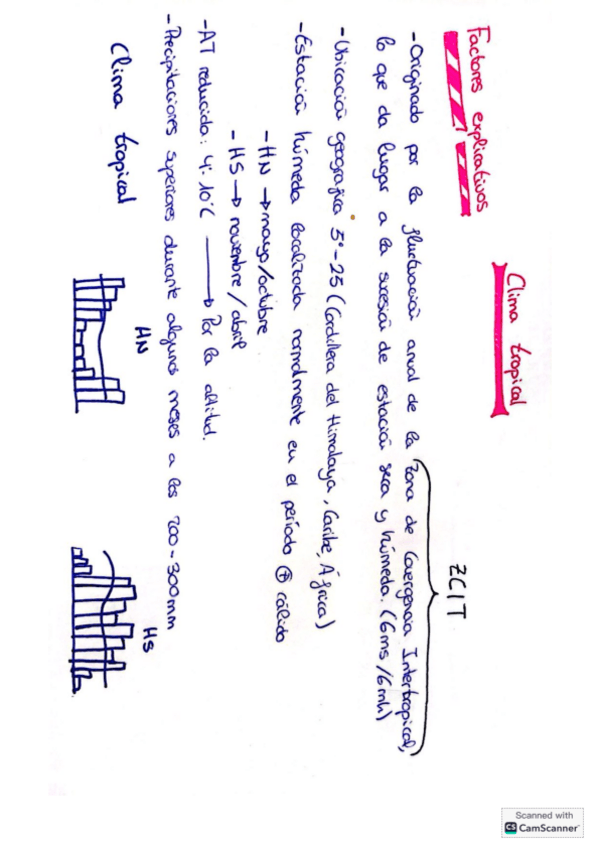 Clima tropical
Factores explicativos
ZCIT
- Originado por la fluctuación anual de la Zona de Covergencia Intertropical,
lo que da lugar a la sucesión de estación seca y húmeda. (6ms/6mh)
- Ubicación geográfica 5°-25 (Cordillera del Himalaya, Caribe, África)
- Estación húmeda localizada normalmente en el período + cálido
- HN → mayo/octubre
- HS → noviembre/abril
- AT reducida: 4-10°C → Por la altitud.
- Precipitaciones superiores durante algunos meses a los 200-300mm
HN
HS
Clima tropical
Scanned with
CS CamScanner